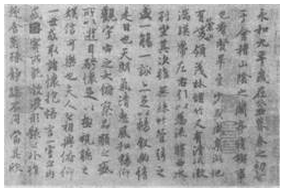 永和九年歲在癸丑暮春之初會
于會稽山陰之蘭亭脩禊事
也群賢畢至少長咸集此地
有崇領茂林脩竹又有清流激
湍暎帶左右引以為流觴曲水
列坐其次雖無絲竹管弦之
盛一觴一詠亦足以暢敘幽情
是日也天朗氣清惠風和暢仰
觀宇宙之大俯察品類之盛
所以遊目騁懷足以極視聽之
娛信可樂也夫人之相與俯仰
一世或取諸懷抱悟言一室之內
或因寄所託放浪形骸之外雖
趣舍萬殊靜躁不同當其欣